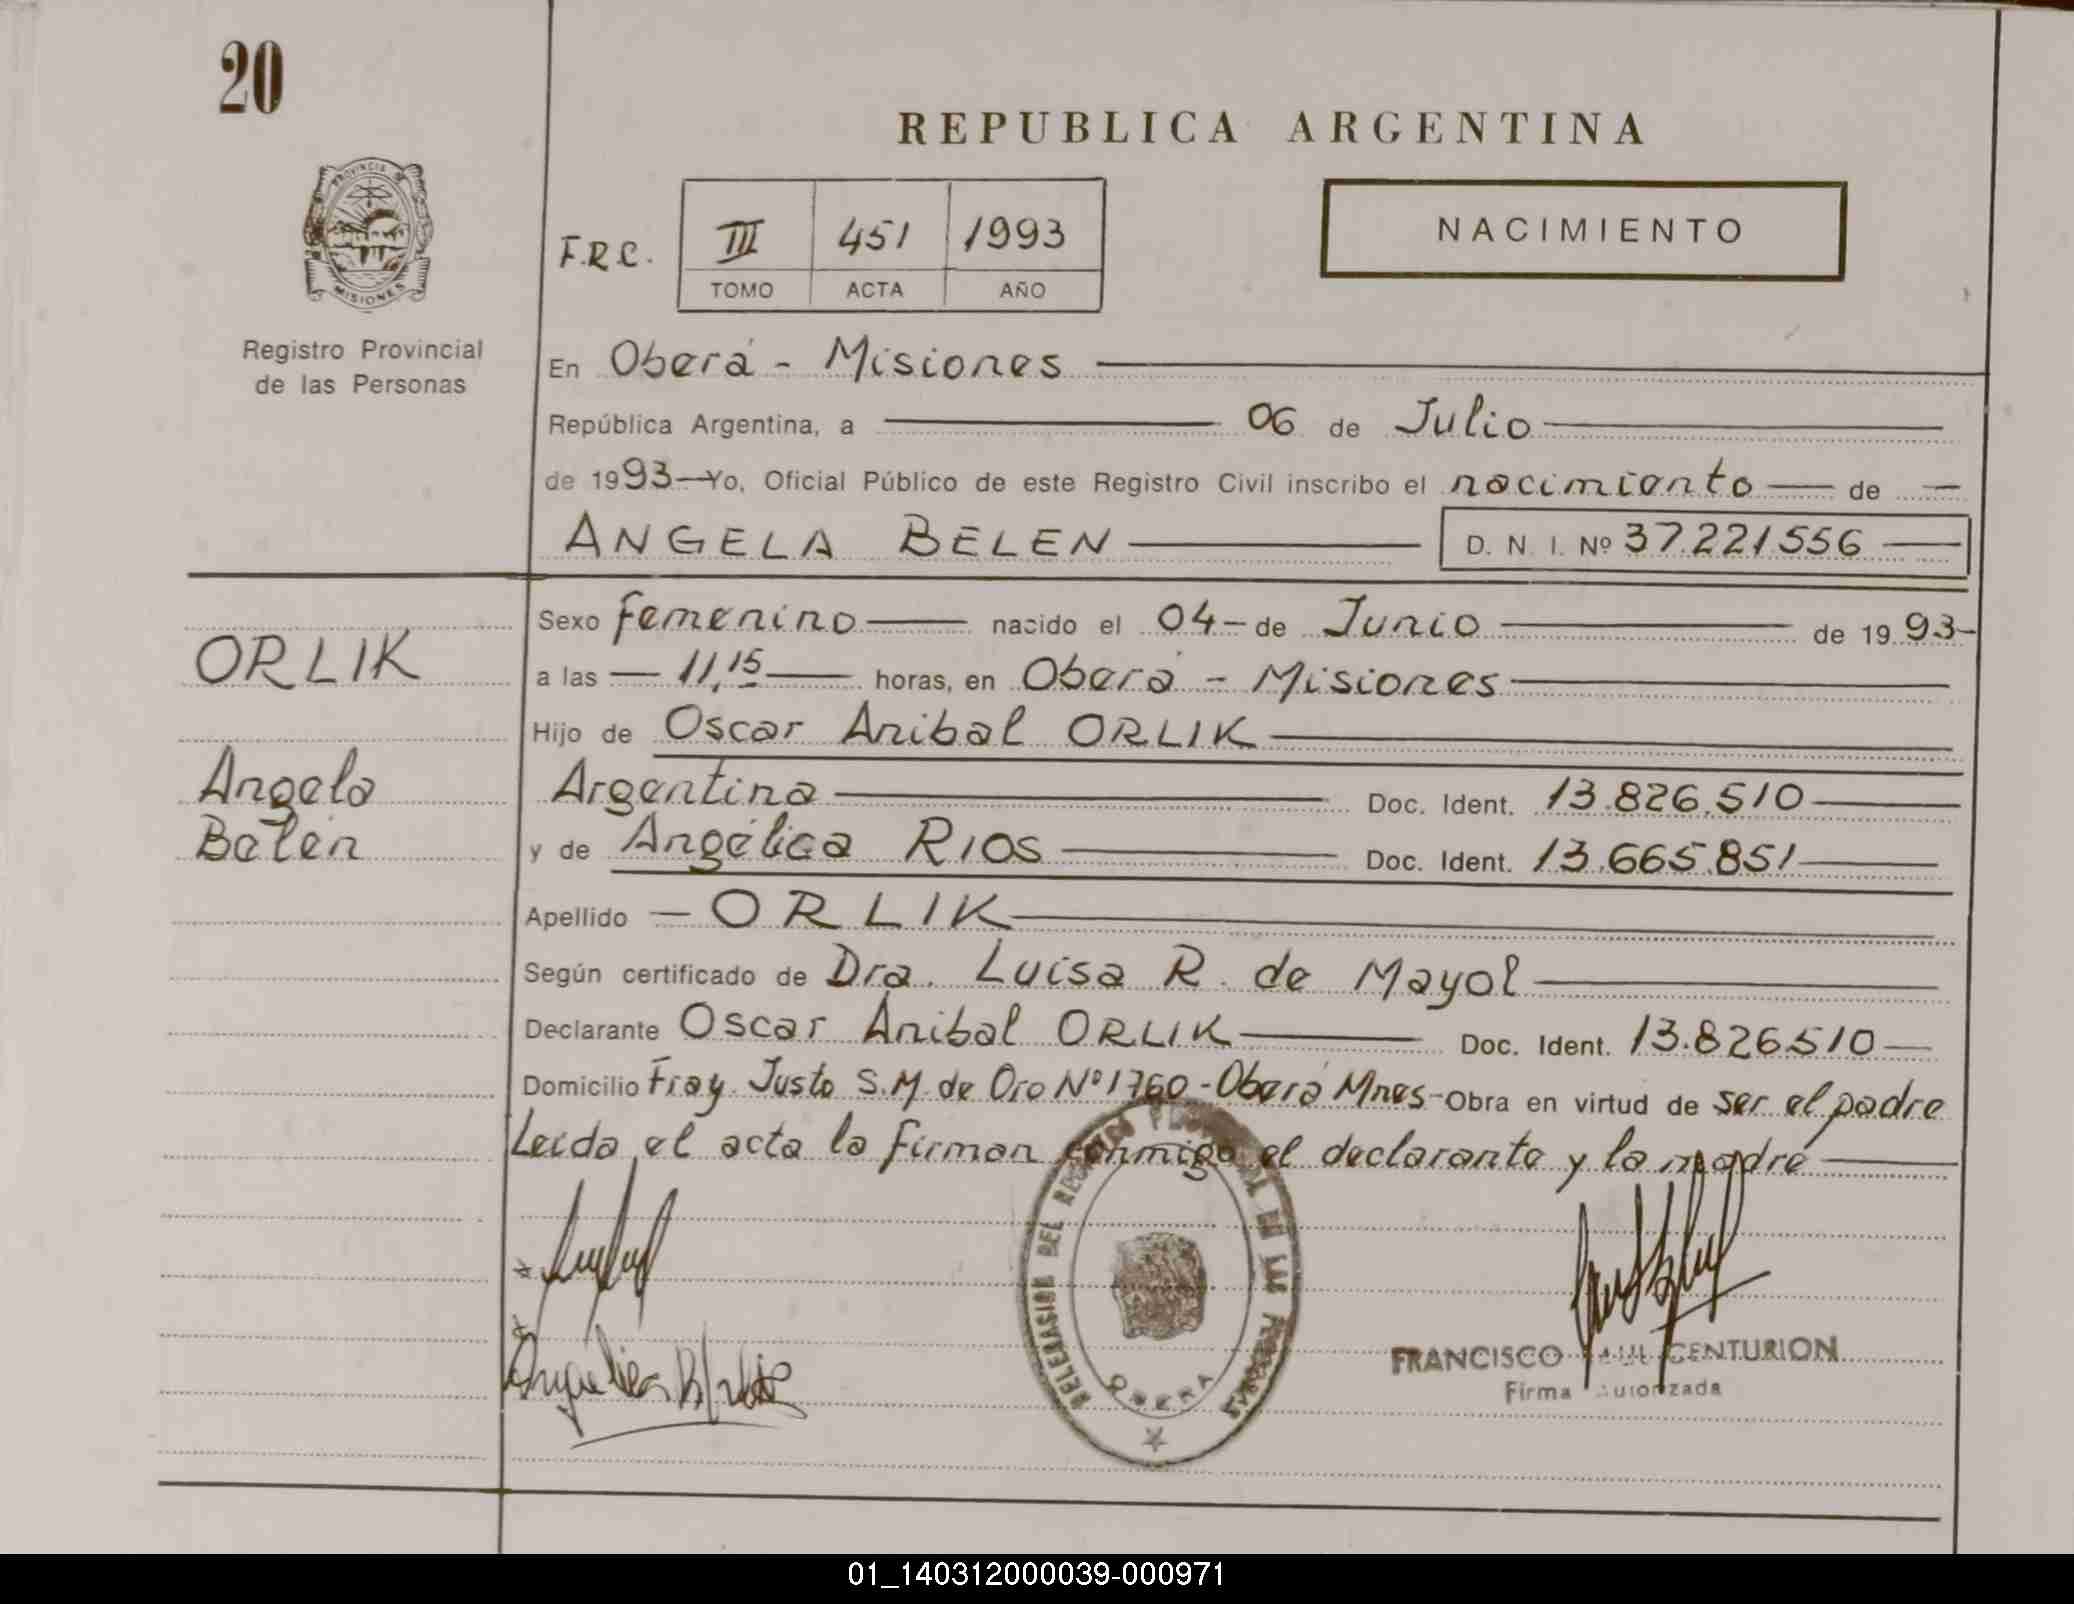 20
REPUBLICA ARGENTINA
PROVINCIA DE
MISIONES
Registro Provincial
de las Personas
F.R.C.
III 451 1993
TOMO ACTA AÑO
NACIMIENTO
En Oberá - Misiones
República Argentina, a 06 de Julio
de 1993 Yo, Oficial Público de este Registro Civil inscribo el nacimiento de
ANGELA BELEN D. N. I. Nº 37.221556
Sexo femenino nacido el 04 de Junio de 1993
a las 11,15 horas, en Oberá - Misiones
Hijo de Oscar Anibal ORLIK
Argentina Doc. Ident. 13.826.510
y de Angélica RIOS Doc. Ident. 13.665.851
Apellido ORLIK
Según certificado de Dra. Luisa R. de Mayol
Declarante Oscar Anibal ORLIK Doc. Ident. 13.826510
Domicilio Fray Justo S.M. de Oro Nº 1760 - Oberá Mnes - Obra en virtud de ser el padre
Leida el acta la firman conmigo el declarante y la madre
ORLIK
Angela
Belén
DELEGACION DEL REGISTRO PROVINCIAL DE LAS PERSONAS
OBERA
FRANCISCO CENTURION
Firma Autorizada
01_140312000039-000971